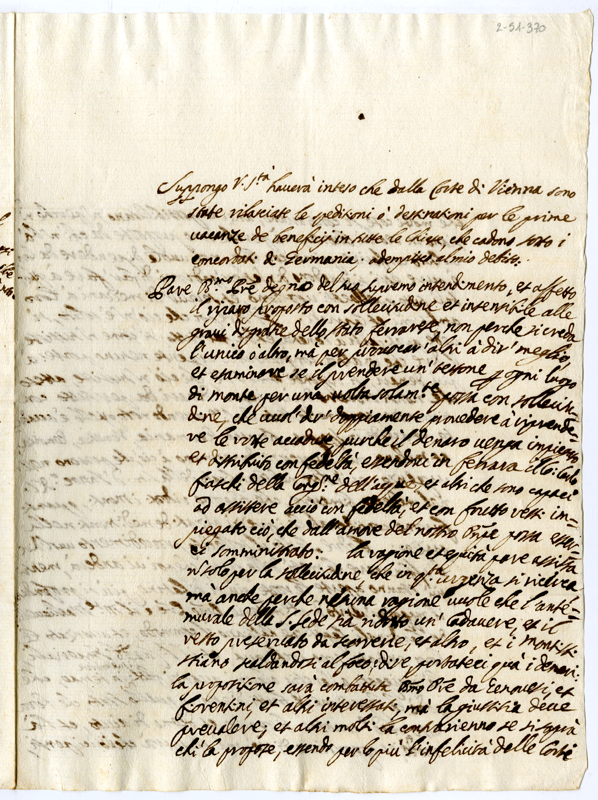 2-51-370
Suppongo V. S.tà haverà inteso che dalla Corte di Vienna sono
state rilasciate le spedizioni ò destinazioni per le prime
vacanze de beneficij in tutte le Chiese, che cadono sotto i
concordati di Germania, adempito al mio debito.
Pare B.mo Pre degno del suo supremo intendimento, et affetto
il riparo proposto con sollecitudine et intensibile alle
gravi disgrazie dello stato ferrarese, non perche si creda
l'unico ò altro, mà per provocar' altri à dir' meglio,
et esaminare se il prendere un' testone p ogni luogo
di monte per una volta solam.te possa con sollecitu=
dine, che vuol' dir' doppiamente provedere à riprende=
re le rotte accadute, purche il denaro venga impiegato
et distribuito con fedeltà, essendoci in ferrara il
della Cong.ne dell'acque, et altri che sono capaci
ad assistere acciò con fedeltà, et con frutto resti im=
piegato ciò, che dall'amore del nostro Pnpe possa esser=
ci somministrato: la ragione et equità pare assista
n solo per la sollecitudine che in q.ta urgenza si ricerca
mà anche perche nessuna ragione vuole che l'ante=
murale della S. Sede sia ridotto un' Cadavere, et il
resto preservato da scorrerie, et altro, et i Montisti
stiano scaldandosi al foco: dire, portateci quà i denari:
la propositione sarà combattuta Bmo Pre da Genovesi, et
fiorentini, et altri interessati, mà la giustizia deve
prevalere, et altri molti la contrarienno se si saprà
chi la propose, essendo per lo più l'infelicità delle Corti